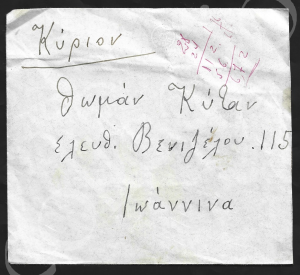 Κύριον
Θωμάν Κύταν
Ελευθ. Βενιζέλου. 115
Ιωάννινα